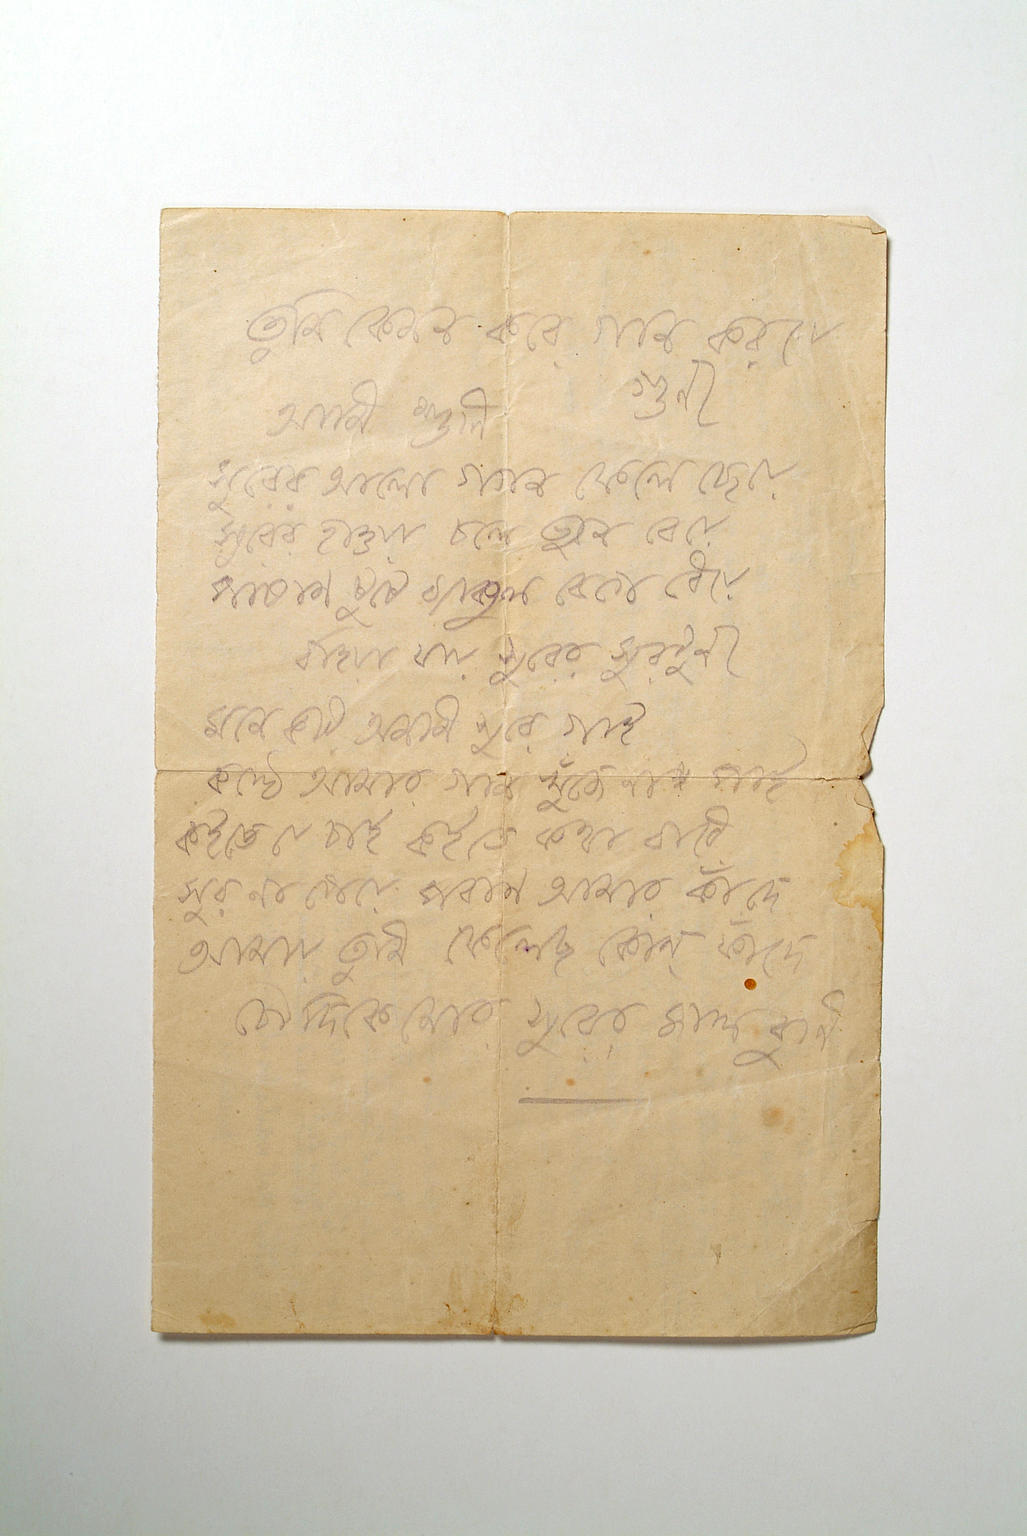 তুমি কেমন করে গান কর যে
গুনী
আমি শুনি
সুরের আলো গগন ফেলে ছেয়ে
সুরের হাওয়া চলে ভুবন বেয়ে
পাষাণ টুটে ব্যাকুল বেগে ধেয়ে
বহিয়া যায় সুরের সুরধুনী
মনে করি অমনি সুরে গাই
কণ্ঠে আমার গান খুঁজে না পাই
কইতে যে চাই কইতে কথা বাধে
সুর না পেয়ে পরাণ আমার কাঁদে
আমায় তুমি ফেলেছ কোন্ ফাঁদে
চৌদিকে মোর সুরের জাল বুনি